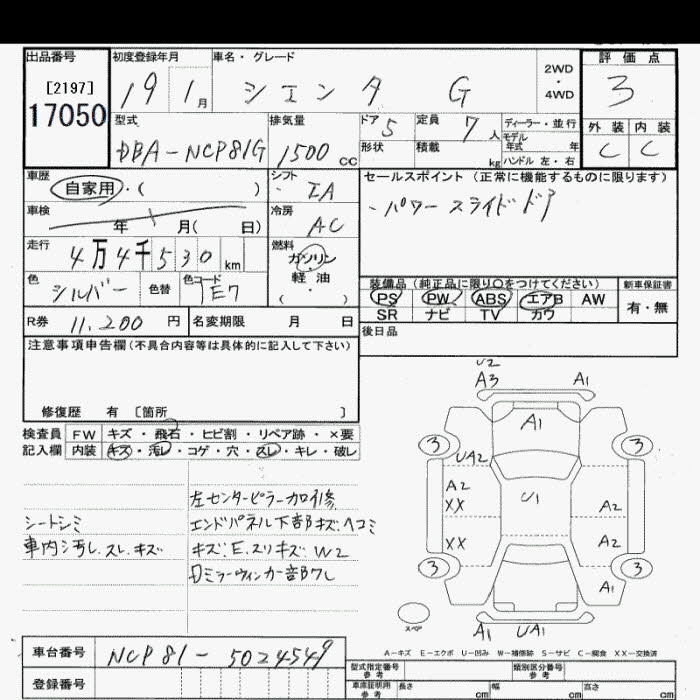 出品番号 初度登録年月 車名・グレード 2WD・4WD 評価点
[2197] 17050 19 1月 シエンタ G 3
型式 排気量 ドア 5 定員 7人 ディーラー・並行 外装 内装
DBA-NCP81G 1500cc 形状 積載 kg モデル年式 年 ハンドル 左・右 C C
車歴 自家用・( ) シフト IA セールスポイント(正常に機能するものに限ります)
車検 年 月( 日) 冷房 AC ・パワースライドドア
走行 4万4千530km 燃料 ガソリン・軽油・( )
色 シルバー 色替 色コード 1E7
装備品(純正品に限り○をつけてください) 新車保証書
PS PW ABS エアB AW 有・無
SR ナビ TV カワ
R券 11,200円 名変期限 月 日 後日品
注意事項申告欄(不具合内容等は具体的に記入して下さい)
修復歴 有 [箇所 ]
検査員記入欄 FW キズ・飛石・ヒビ割・リペア跡・×要
内装 キズ・汚れ・コゲ・穴・スレ・キレ・破レ
U2
A3 A1
A1
3 3
UA2
A2 U1
XX A2
XX A2
3 3
A1
スペア A1 UA1
左センターピラー加修
シートシミ エンドパネル下部キズ、ヘコミ
車内汚れ.スレ.キズ キズ.E.スリキズ.W2
ミラーウィンカー部ワレ
A-キズ E-エクボ U-凹み W-補修跡 S-サビ C-腐食 XX-交換済
車台番号 NCP81-5024549
登録番号
型式指定番号 参考 類別区分番号 参考
車庫証明用 参考 長さ cm 幅 cm 高さ cm